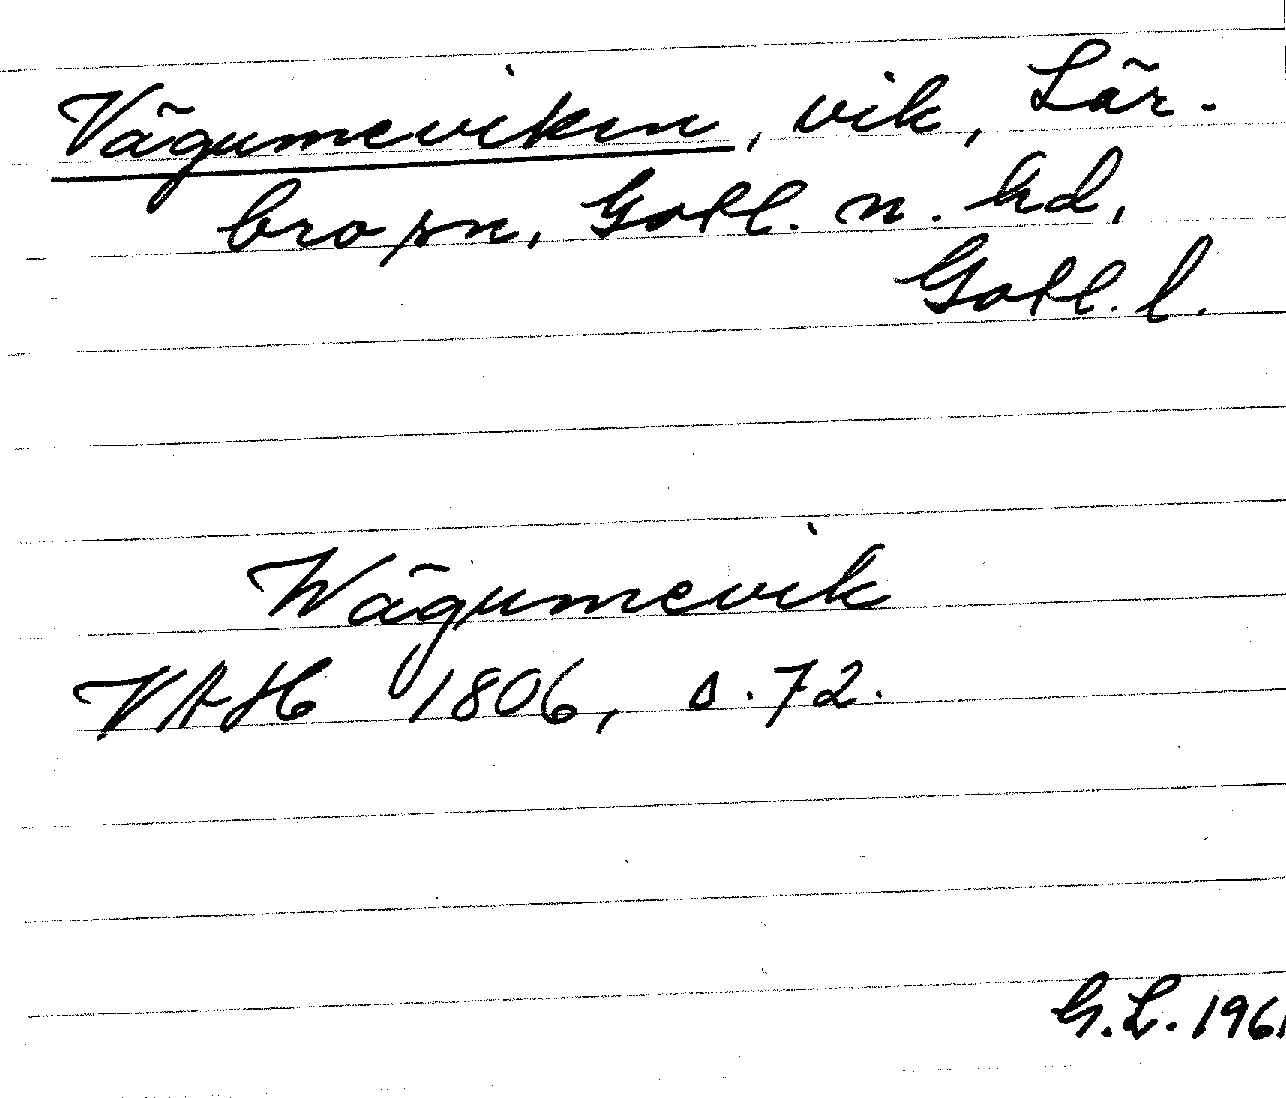 Vägumeviken, vik, Lär-
bro sn, Gotl. n. hd,
Gotl. l.
Wägumevik
VAH 1806, s. 72.
G.L. 1961